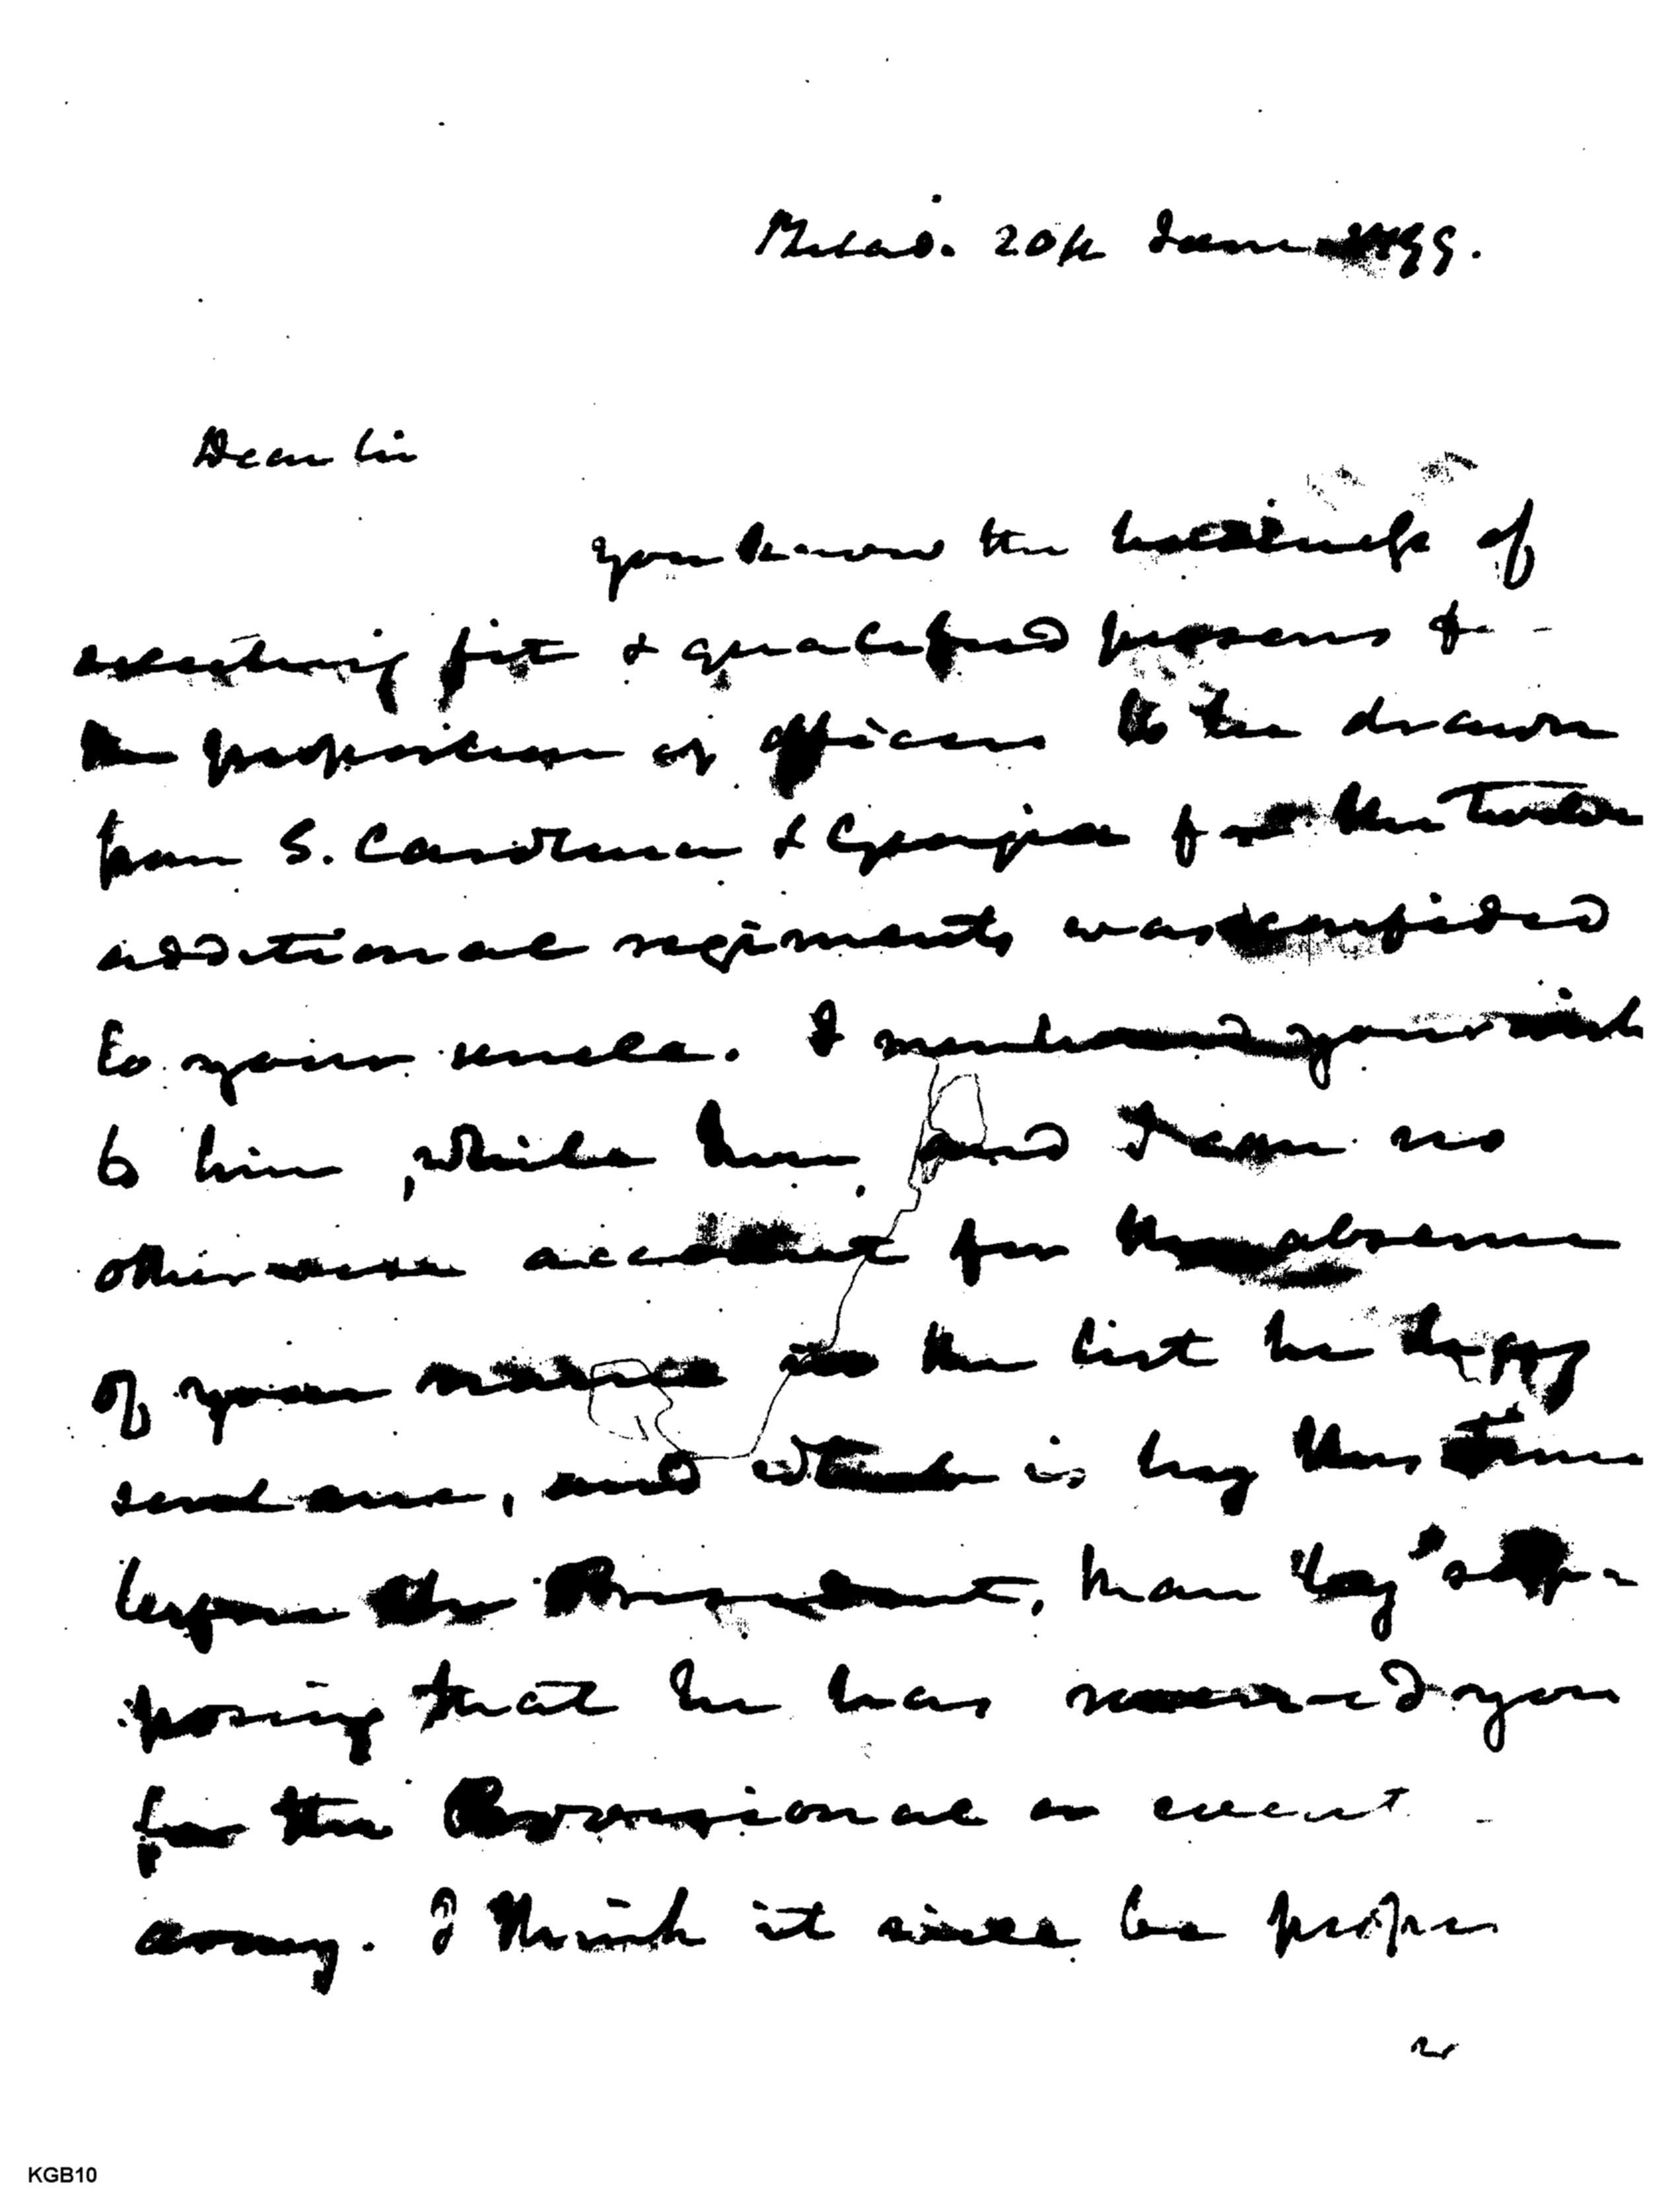 Philad. 20th June 1799.
Dear Sir
you know the business of
selecting fit & qualified persons f
the proportion of officers to be drawn
from S. Carolina & Georgia for the Twelve
additional regiments was confided
to your uncle. I mentioned your wish
to him, while here, and I can no
otherwise account for the absence
of your name in the list he has
sent me, and which is by this time
before the President, than by sup-
posing that he has reserved you
for the Provisional or event
army. I think it will be proper
KGB10